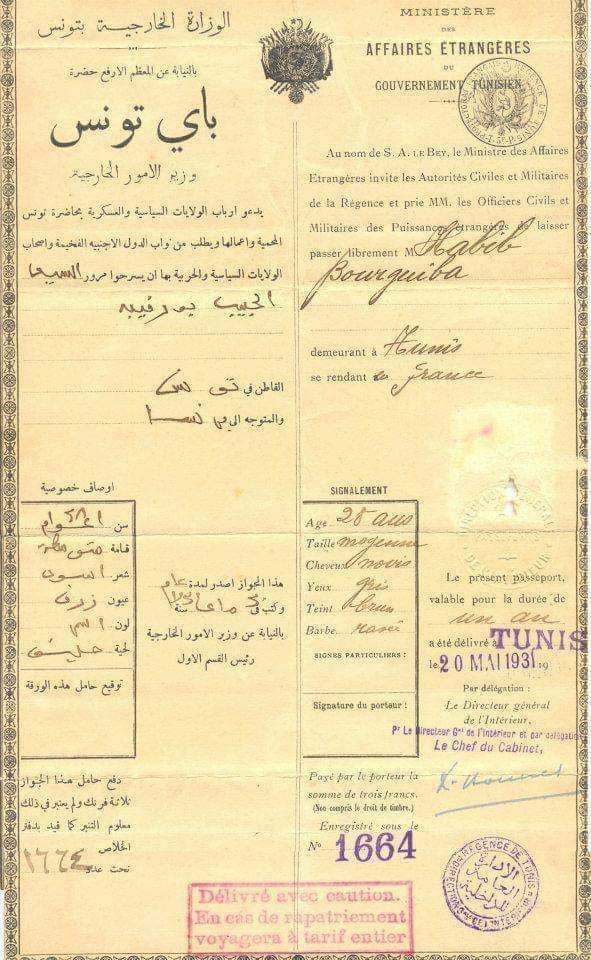 الوزارة الخارجية بتونس
بالنيابة عن المعظم الارفع حضرة
باي تونس
وزير الامور الخارجية
يدعو ارباب الولايات السياسية والعسكرية بحاضرة تونس
المحمية واعمالها ويطلب من نواب الدول الاجنبيه الفخيمة واصحاب
الولايات السياسية والحربية بها ان يسرحوا مرور السيد
الحبيب بورقيبه
القاطن في تونس
والمتوجه الى فرنسا
اوصاف خصوصية
سن 28 اعوام
قامة متوسطة
شعر اسود
عيون زرق
لون اسمر
لحية حليق
توقيع حامل هذه الورقة
هذا الجواز اصدر لمدة عام
وكتب في ماي سنة
بالنيابة عن وزير الامور الخارجية
رئيس القسم الاول
دفع حامل هذا الجواز
ثلاثة فرنك ولم يعتبر في ذلك
معلوم التنبر كما قيد بدفتر
الخلاص
تحت عدد ١٦٦٤
MINISTÈRE
DES
AFFAIRES ÉTRANGÈRES
DU
GOUVERNEMENT TUNISIEN
Au nom de S. A. LE BEY, le Ministre des Affaires
Etrangères invite les Autorités Civiles et Militaires
de la Régence et prie MM. les Officiers Civils et
Militaires des Puissances étrangères de laisser
passer librement M Habib
Bourguiba
demeurant à Tunis
se rendant en France
SIGNALEMENT
Age 28 ans
Taille moyenne
Cheveux noirs
Yeux gris
Teint brun
Barbe rasée
SIGNES PARTICULIERS :
Signature du porteur :
Le présent passeport,
valable pour la durée de
un an
a été délivré à TUNIS
le 20 MAI 1931 19
Par délégation :
Le Directeur général
de l'Intérieur,
Pr Le Directeur Gal de l'Intérieur et par délégation
Le Chef du Cabinet,
Payé par le porteur la
somme de trois francs.
(Non compris le droit de timbre.)
Enregistré sous le
No 1664
Délivré avec caution.
En cas de rapatriement
voyagera à tarif entier
REGENCE DE TUNIS
DIRECTION GLE DE L'INTÉRIEUR
الادارة
العامة
للداخلية